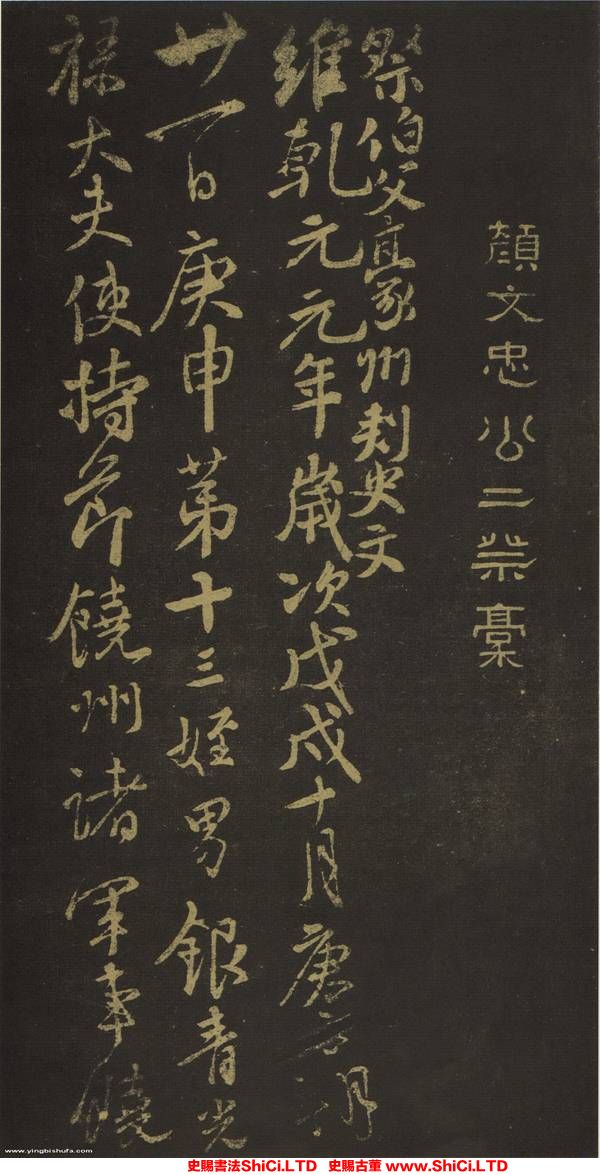 顏文忠公二祭稾
祭伯父豪州刺史文
維乾元元年歲次戊戌十月庚子朔
廿一日庚申第十三姪男銀青光
祿大夫使持節饒州諸軍事饒
www.yingbishufa.com
史賜書法ShiCi.LTD 史賜古董 www.ShiCi.LTD